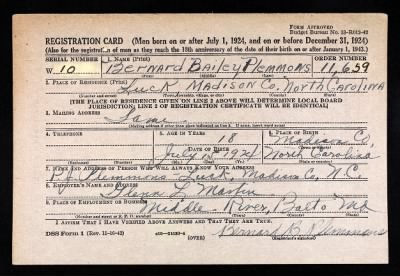 FORM APPROVED
Budget Bureau No. 33-R012-42
REGISTRATION CARD (Men born on or after July 1, 1924, and on or before December 31, 1924)
(Also for the registration of men as they reach the 18th anniversary of the date of their birth on or after January 1, 1943.)
SERIAL NUMBER 1. NAME (Print) ORDER NUMBER
W 10 BERNARD BAILEY PLEMMONS 11,659
2. PLACE OF RESIDENCE (Print)
Luck MADISON CO. NORTH CAROLINA
[THE PLACE OF RESIDENCE GIVEN ON LINE 2 ABOVE WILL DETERMINE LOCAL BOARD
JURISDICTION; LINE 2 OF REGISTRATION CERTIFICATE WILL BE IDENTICAL]
3. MAILING ADDRESS
Same
4. TELEPHONE 5. AGE IN YEARS 6. PLACE OF BIRTH
18 Madison Co,
DATE OF BIRTH
July 1924 North Carolina
7. NAME AND ADDRESS OF PERSON WHO WILL ALWAYS KNOW YOUR ADDRESS
Plemmons Luck, Madison Co, N.C.
8. EMPLOYER'S NAME AND ADDRESS
Glenn L. Martin
9. PLACE OF EMPLOYMENT OR BUSINESS
Middle River, Balto Md
I AFFIRM THAT I HAVE VERIFIED ABOVE ANSWERS AND THAT THEY ARE TRUE.
DSS Form 1 (Rev. 11-16-42) (OVER) Bernard B. Plemmons